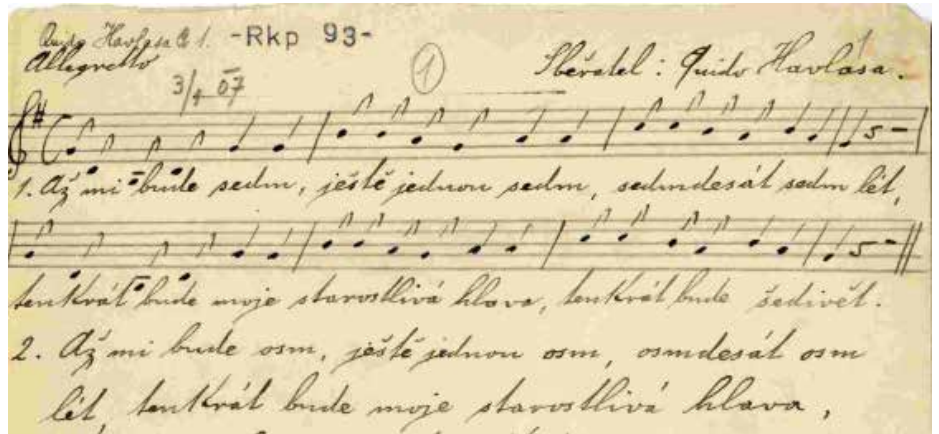 Quido Havlasa č 1. -Rkp 93-
Allegretto
3/4 07
1
Sběratel: Quido Havlasa.
1. Až mi bude sedm, ještě jednou sedm, sedmdesát sedm lét,
tenkrát bude moje starostlivá hlava, tenkrát bude šedivět.
2. Až mi bude osm, ještě jednou osm, osmdesát osm
lét, tenkrát bude moje starostlivá hlava,